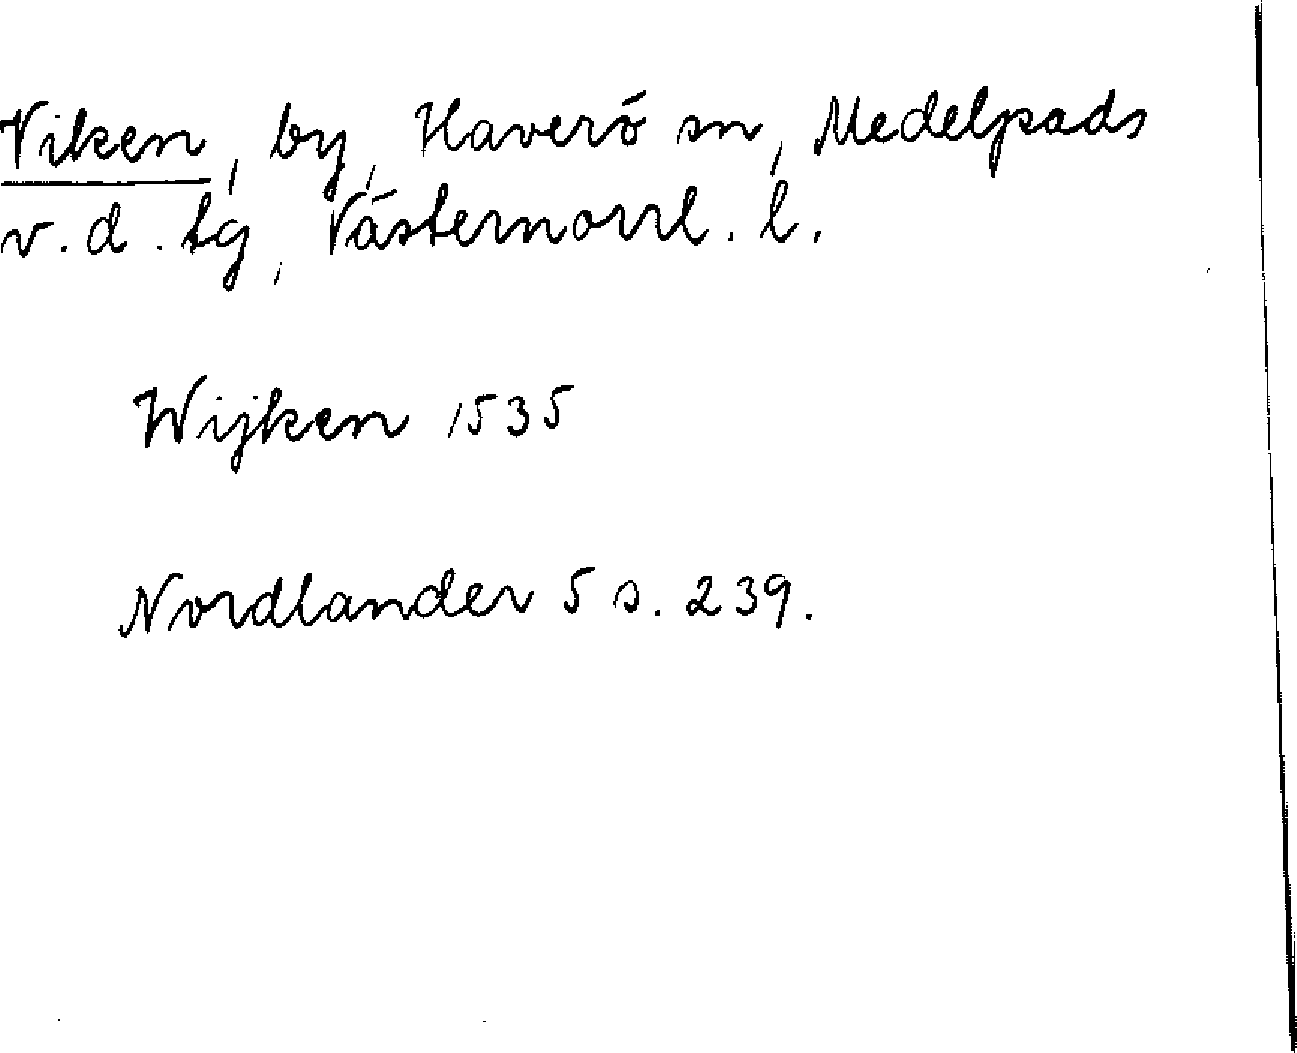 Viken, by, Haverö sn, Medelpads
v.d. tg, Västernorrl. l.
Wijken 1535
Nordlander 5 s. 239.